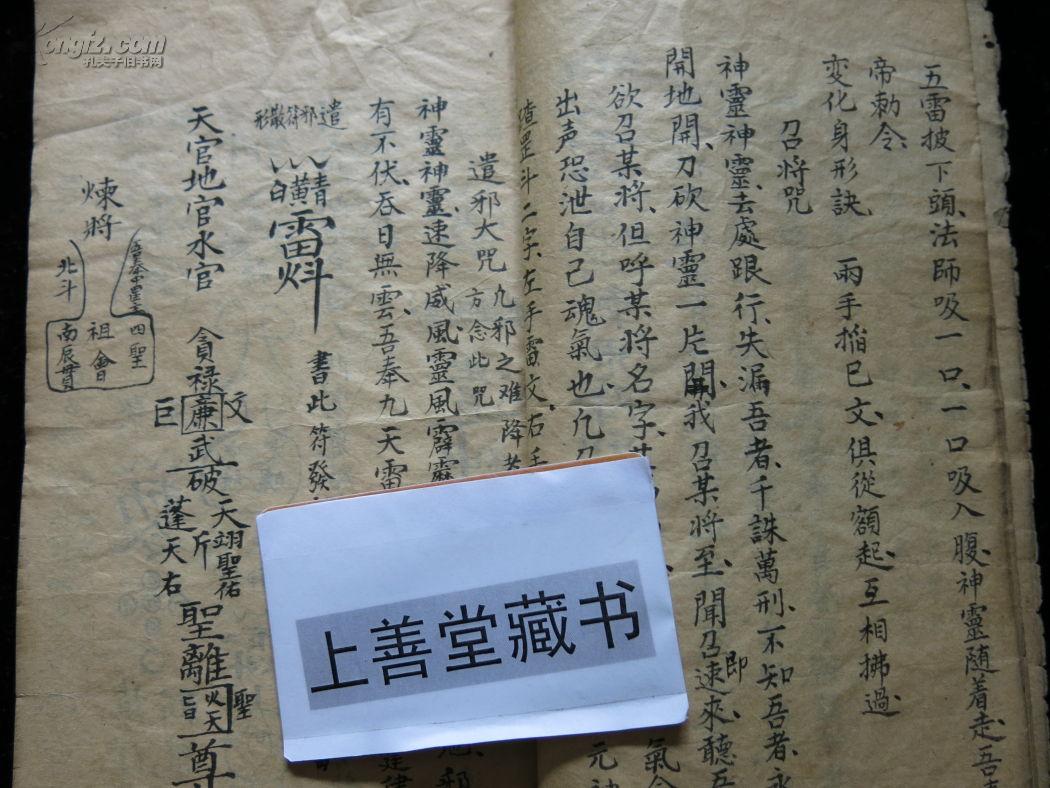 五雷披下頭、法師吸一口、一口吸入腹、神靈随着走、吾
帝勅令、
変化身形訣　兩手掐巳文、俱從額起、互相拂過、
召將咒
神靈神靈、去處跟行、失漏吾者、千誅萬刑、不知吾者、永
開地開、刀砍神靈一片開、我召某將至、聞召即速來聽吾
欲召某將、但呼某將名字、其
氣合
出声恐泄自己魂氣也、凡召
元神
罡斗二字、左手雷文、右手
遣邪大咒　九邪之难降者
方念此咒
神靈神靈、速降威風、靈風霹靂
邪
有不伏、吞日無雲、吾奉九天雷
建律
遣邪符散形
青黃白
雷
書此符發
天官地官水官　貪祿廉武破
文
巨
天翊聖佑
蓬天右
斤
聖離
火天
旨
聖
尊
煉將
北斗
四聖
祖會
南辰貫
上善堂藏书
Kongfz.com
孔夫子旧书网